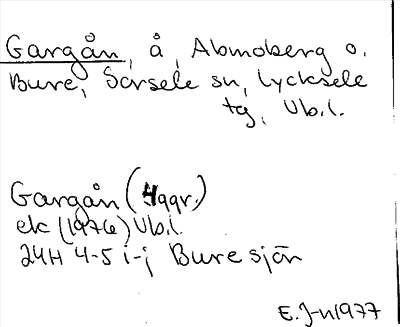 Gargån, å, Abmoberg o.
Bure, Sorsele sn, Lycksele
tg, Vb.l.
Gargån (4ggr.)
ek (1976) Vb.l.
24H 4-5 i-j Buresjön
E.J-n1977